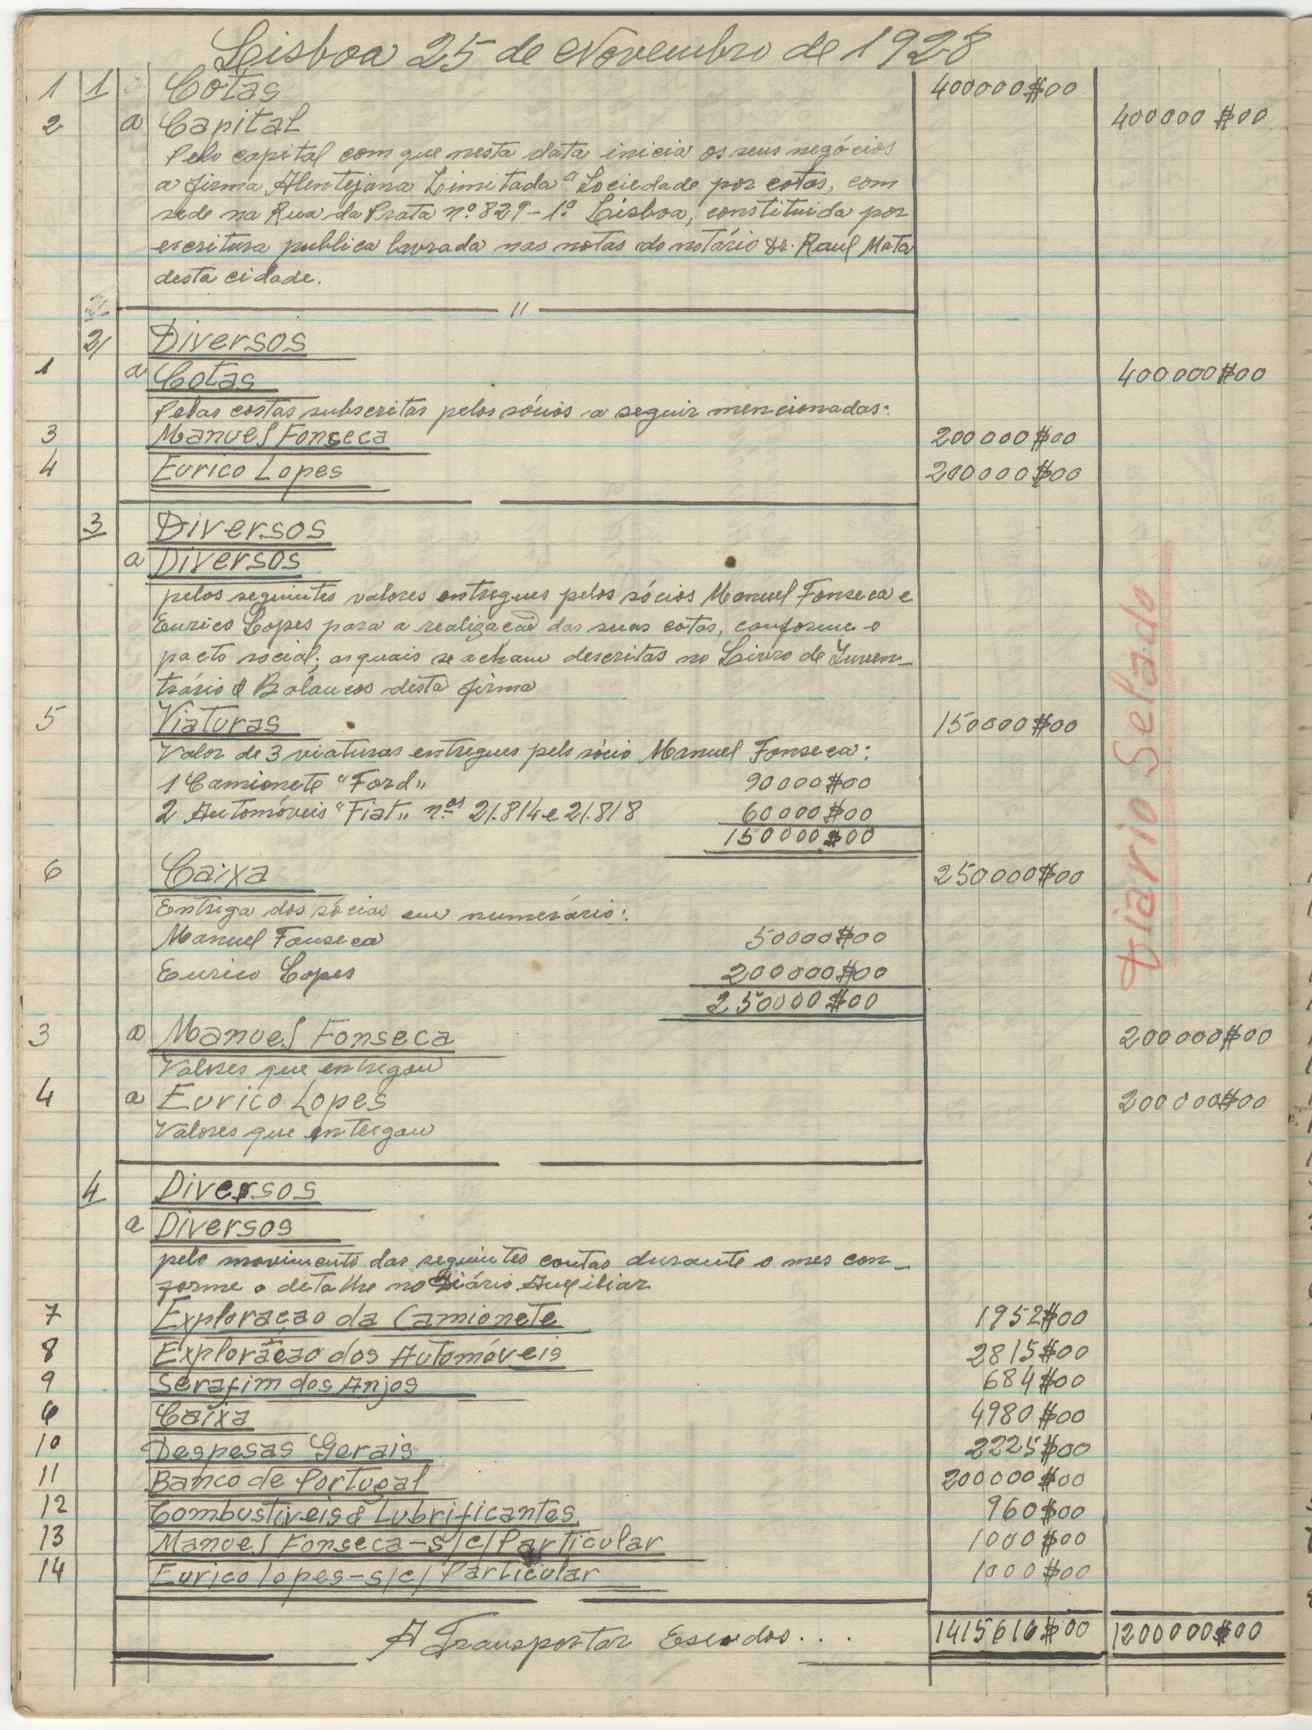 Lisboa 25 de Novembro de 1928
1 1 Cotas 400000$00
2 a Capital 400000$00
Pelo capital com que nesta data inicia os seus negócios
a firma "Alentejana Limitada" Sociedade por cotas, com
sede na Rua da Prata nº 829-1º Lisboa, constituida por
escritura publica lavrada nas notas do notário Dr. Raul Mata
desta cidade.
2/ Diversos
1 a Cotas 400000$00
Pelas costas subscritas pelos sócios a seguir mencionadas:
3 Manuel Fonseca 200000$00
4 Eurico Lopes 200000$00
3 Diversos
a Diversos
pelos seguintes valores entregues pelos sócios Manuel Fonseca e
Eurico Lopes para a realização das suas cotas, conforme o
pacto social; as quais se acham descritas no Livro de Inven-
trário & Balancos desta firma
5 Viaturas 150000$00
Valor de 3 viaturas entregues pelo sócio Manuel Fonseca:
1 Camionete "Ford" 90000$00
2 Automóveis "Fiat" n.os 21.814 e 21.818 60000$00
150000$00
6 Caixa 250000$00
Entrega dos sócios em numerário:
Manuel Fonseca 50000$00
Eurico Lopes 200000$00
250000$00
3 a Manuel Fonseca 200000$00
Valores que entregou
4 a Eurico Lopes 200000$00
Valores que entregou
4 Diversos
a Diversos
pelo movimento das seguintes contas durante o mes con-
forme o detalhe no Diário Auxiliar
7 Exploraçao da Camionete 1952$00
8 Exploraçao dos Automóveis 2815$00
9 Serafim dos Anjos 684$00
6 Caixa 4980$00
10 Despesas Gerais 2225$00
11 Banco de Portugal 200000$00
12 Combustiveis & Lubrificantes 960$00
13 Manuel Fonseca-s/c/Particular 1000$00
14 Eurico Lopes-s/c/Particular 1000$00
A Transportar Escudos... 1415616$00 1200000$00
Diario Selado